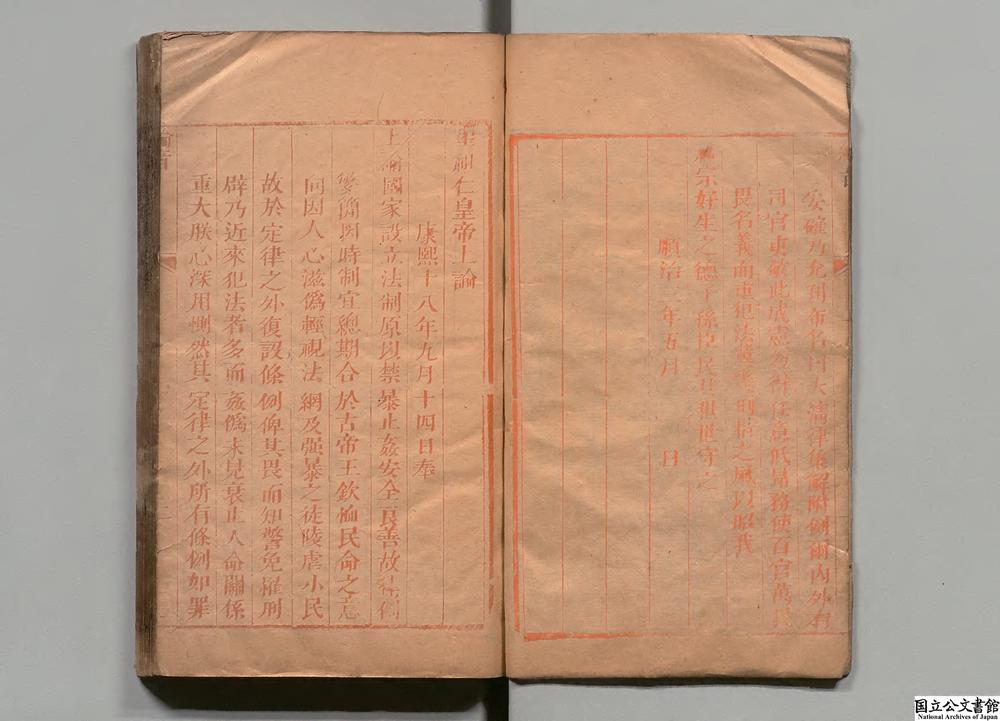 妥確乃允刊布名曰大清律集解附例爾內外有
司官吏敬此成憲勿得任意低昂務使百官萬民
畏名義而重犯法冀幾刑措之風以昭我
祖宗好生之德子孫臣民其世世守之
順治三年五月 日
聖祖仁皇帝上諭
康熙十八年九月十四日奉
上諭國家設立法制原以禁暴止姦安全良善故律例
繁簡因時制宜總期合於古帝王欽恤民命之意
向因人心滋偽輕視法網及强暴之徒陵虐小民
故於定律之外復設條例俾其畏而知警免罹刑
辟乃近來犯法者多而姦偽未見衰止人命關係
重大朕心深用惻然其定律之外所有條例如罪
国立公文書館
National Archives of Japan